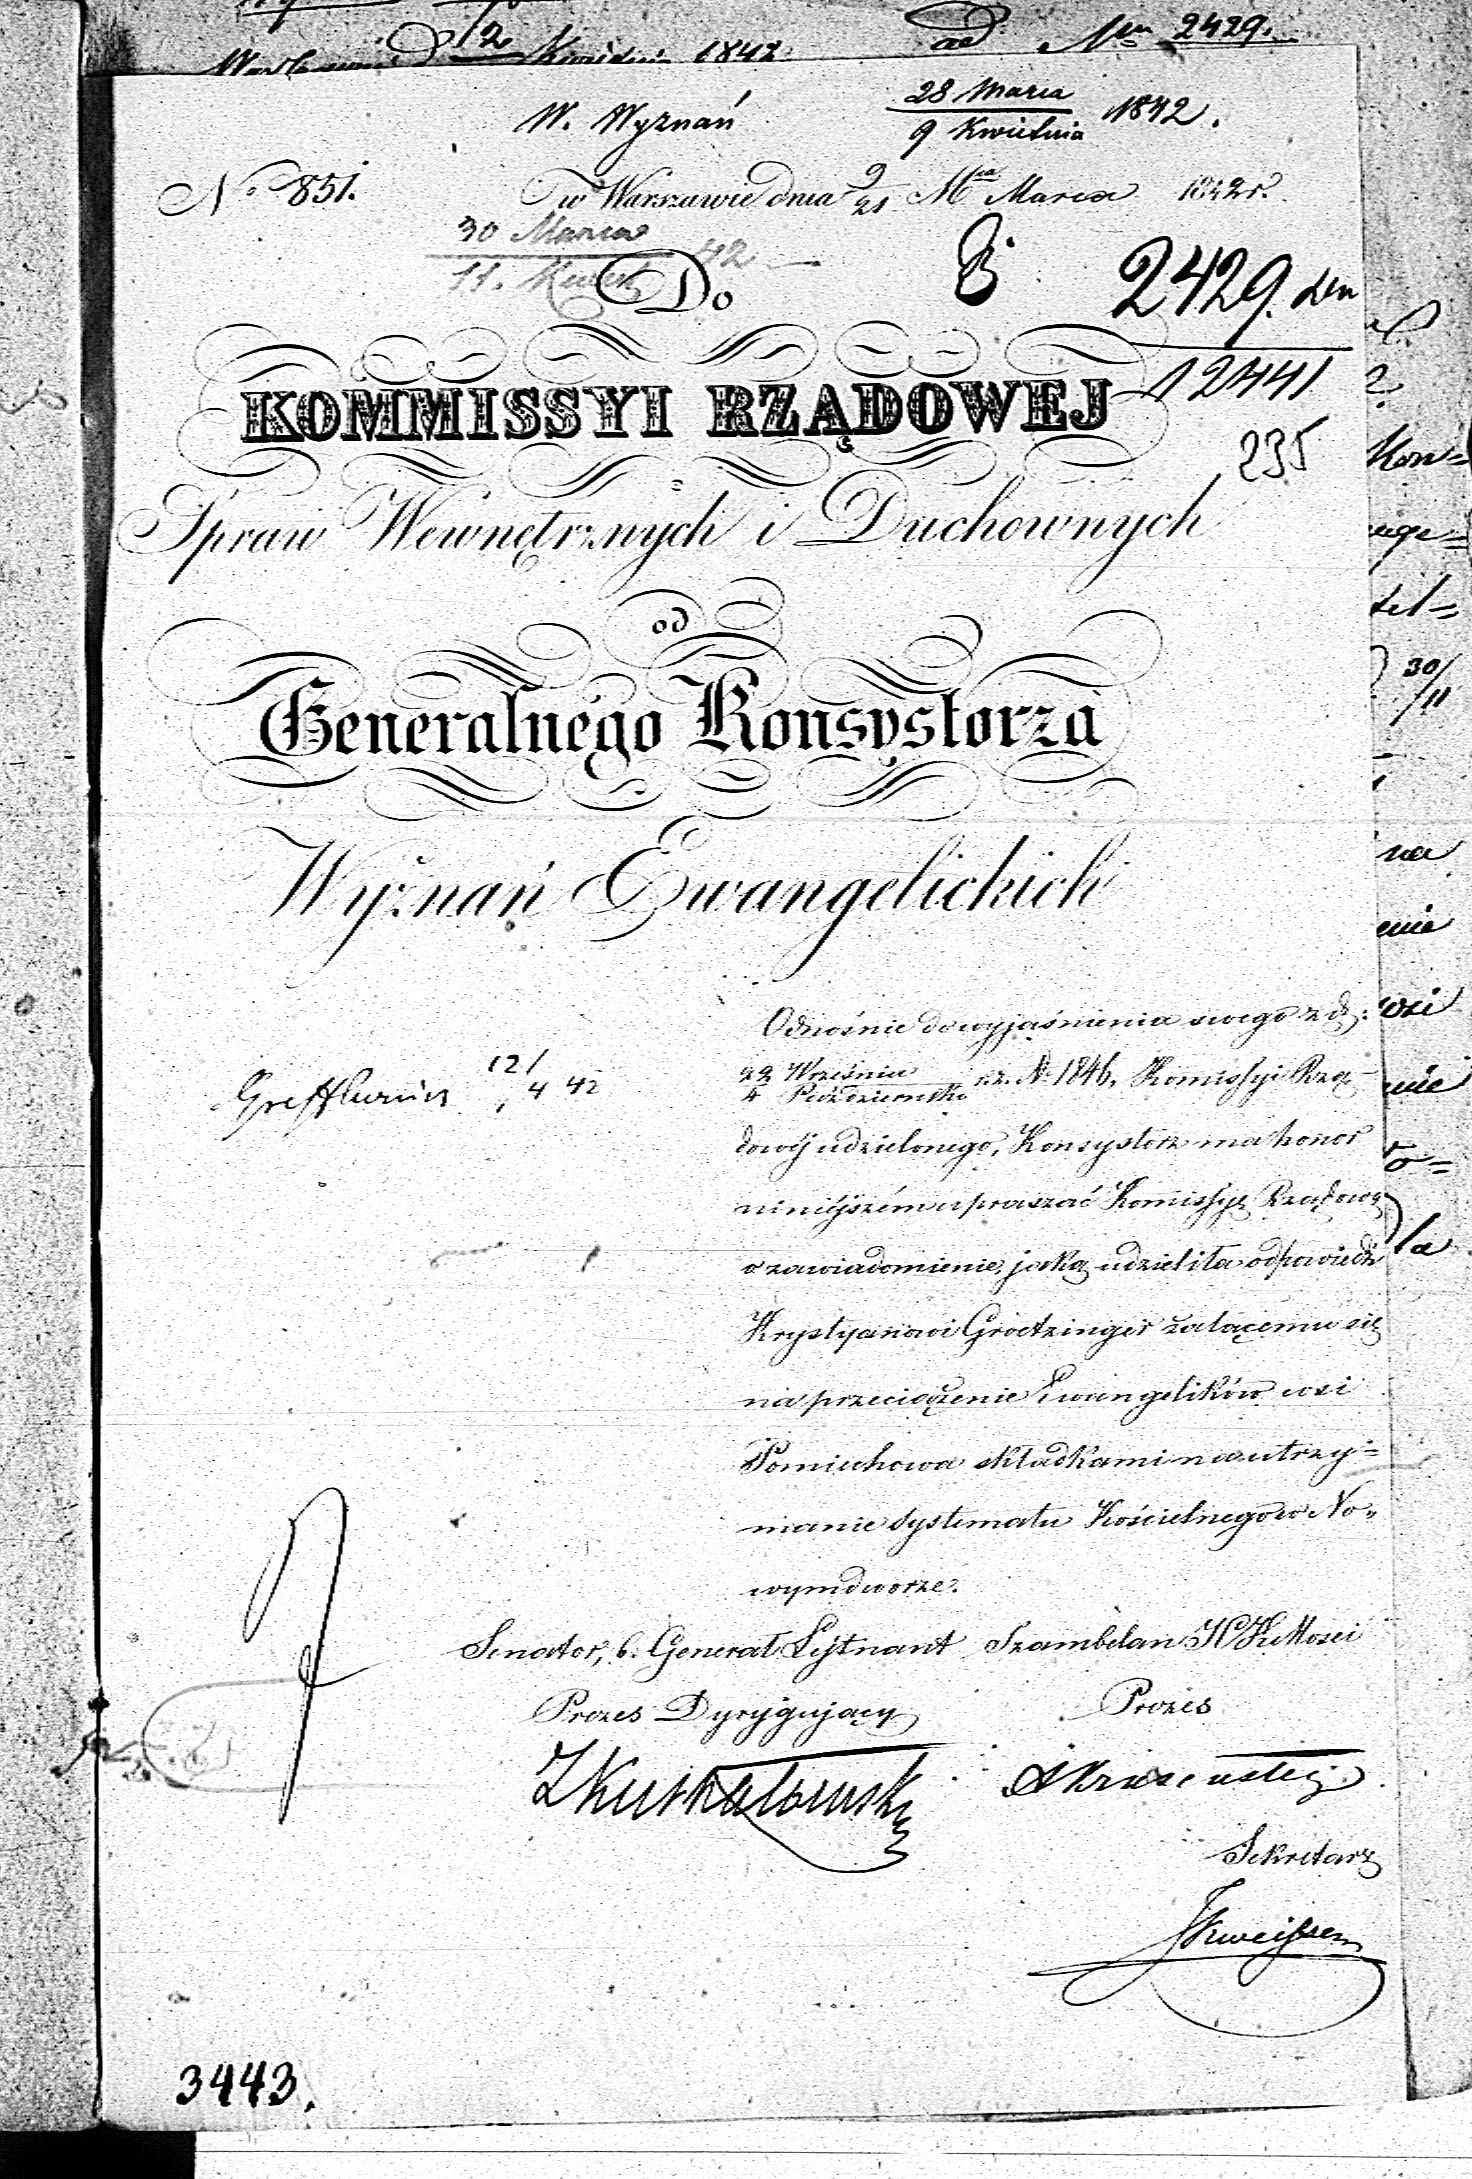 12 Kwietnia 1842
ad Nrm 2429.
W. Wyznań
28 Marca
9 Kwietnia 1842.
No 851.
w Warszawie dnia 9/21 Mca Marca 1842 r.
30 Marca
11. Kwiet 42
Do
B
2429. den
12441
235
KOMMISSYI RZĄDOWEJ
Spraw Wewnętrznych i Duchownych
od
Generalnego Konsystorza
Wyznań Ewangelickich
Odnośnie do wyjaśnienia swego z d:
22 Września
4 Października r.z. No 1846, Komissyi Rzą-
dowéj udzielonego, Konsystorz ma honor
niniéjszém upraszać Komissyę Rządową
o zawiadomienie, jaką udzieliła odpowiedź
Krystyanowi Groetzinger żalącemu się
na przeciążenie Ewangelików wsi
Pomiechowa składkami na utrzy=
manie systematu Kościelnego w No=
wymdworze.
12/4 42
Senator, b. Generał Lejtnant
Prezes Dyrygujący
Szambelan JCKMości
Prezes
Sekretarz
3443.
Kon=
30/11
na
wsi
la